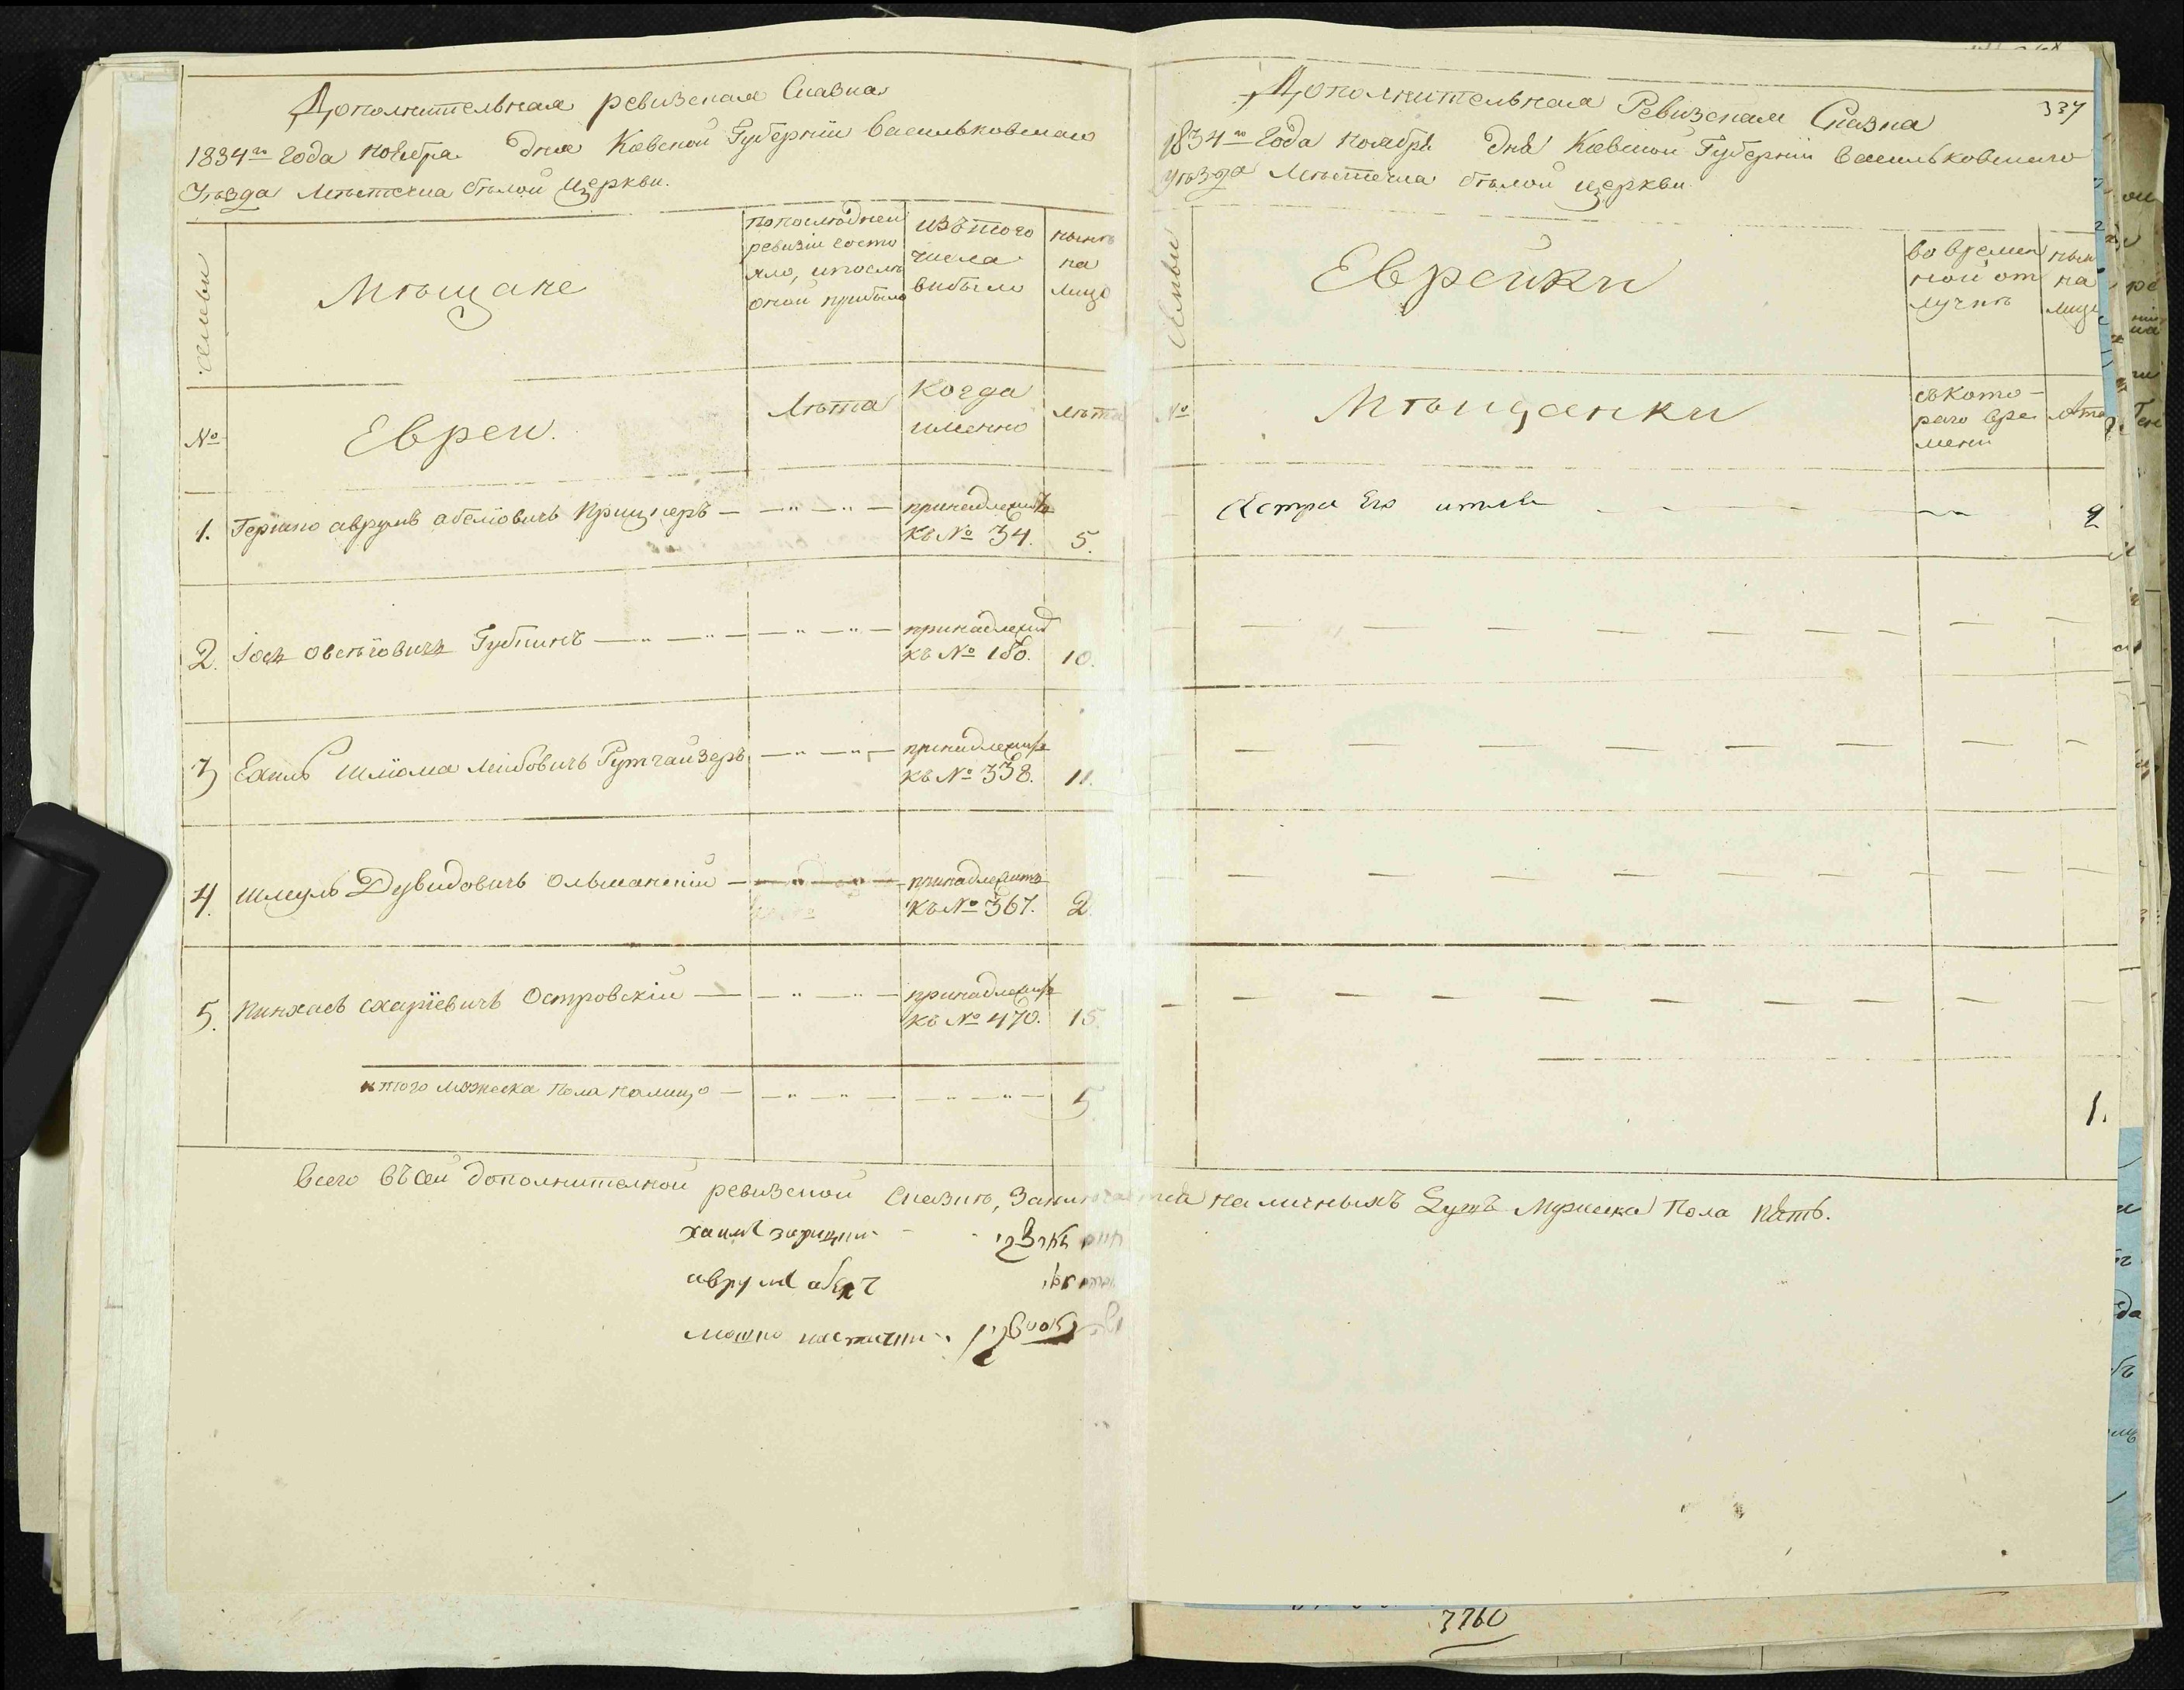 Дополнительная ревизская Сказка
1834го года ноября дня Кіевской Губерніи Васильковскаго
Уѣзда Мѣстечка бѣлой Церкви.
семьи
Мѣщане
по послѣдней
ревизіи состо
яло, и послѣ
оной прибыло
изъ того
числа
выбыло
нынѣ
на
лицо
№
Евреи.
Лѣта
Когда
именно
лѣта
1. Гершко аврумъ абелiовичъ — „ — „ — принадлежитъ
къ № 34. 5.
2. Іось Губкинъ — „ — „ — принадлежит
къ № 180. 10.
3 Ехиль Шліома лейбовичъ Гутгайзеръ — „ — „ — принадлежитъ
къ № 338. 11.
4. Шмуль Дувидовичъ Ольшанскій — принадлежитъ
къ № 367. 2.
5. Пинхасъ схаріевичъ Островскій — — „ — „ — принадлежитъ
къ № 470. 15.
итого мужеска пола налицо — — „ — „ — — „ — „ — 5
Дополнительная Ревизская Сказка
337
1834го Года Ноября дня Кіевской Губерніи Васильковскаго
уѣзда Мѣстечка бѣлой церкви
семьи
Еврейки
во времен
ной от
лучкѣ
нын
на
лицо
№
Мѣщанки
съ кото-
раго вре
мени
лѣта
Сестра Его
1.
Всего въ сей дополнительной ревизской Сказкѣ, Заключается наличныхъ Душъ Мужеска Пола пять.
хаимъ
аврумъ
мошко
3760